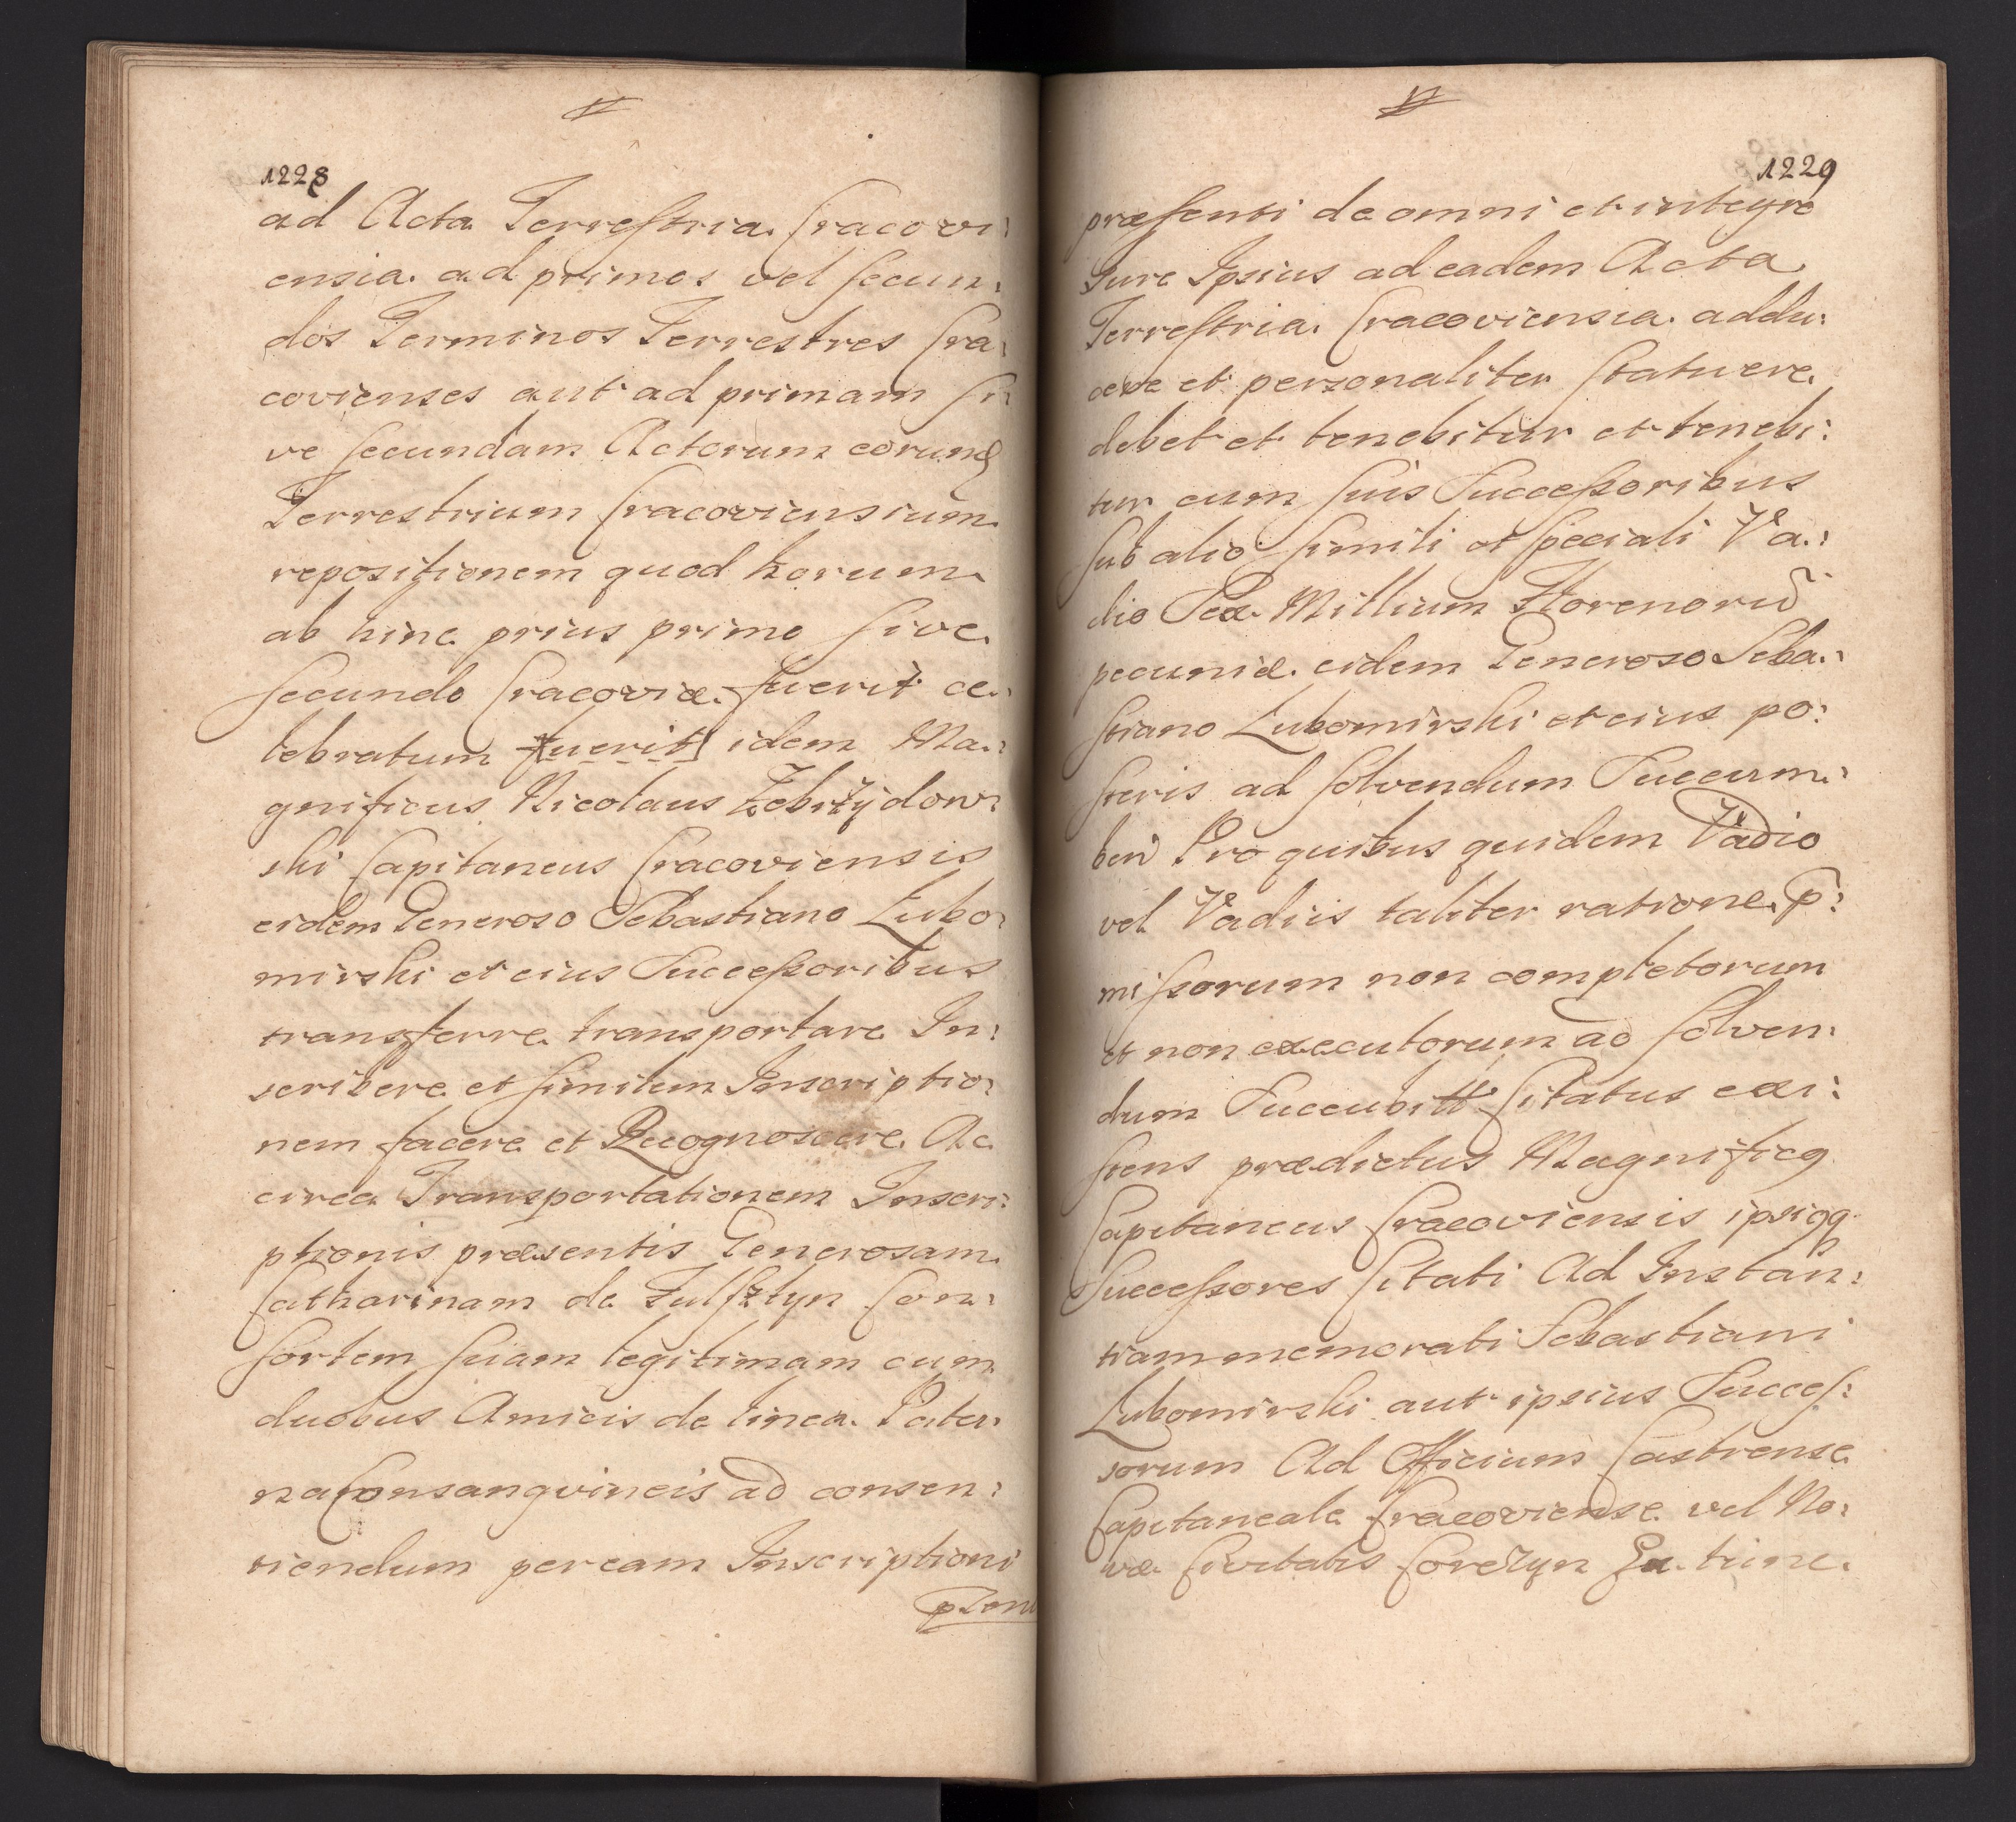 1228
ad Acta Terrestria Cracovi:
ensia ad primos vel secun:
dos Terminos Terrestres Cra:
covienses aut ad primam si:
ve secundam Actorum eorund
Terrestrium Cracoviensium
reposizionem quod horum
ab hinc prius primo sive
secundo Cracoviæ fuerit ce:
lebratum fuerit idem Ma:
gnificus Nicolaus Zebrzÿdow:
ski Capitaneus Cracoviensis
eidem Generoso Sebastiano Lubo:
mirski et eius Successoribus
transferre transportare In:
scribere et similem Inscriptio:
nem facere et Recognoscere Ac
circa Transportationem Inscri:
ptionis præsentis Generosam
Catharinam de Fulsztyn Con:
sortem suam legitimam cum
duobus Amicis de linea Pater:
na Consangvineis ad consen:
tiendum per eam Inscriptioni
1229
præsenti de omni et integro
Iure Ipsius ad eadem Acta
Terrestria Cracoviensia addu:
cere et personaliter statuere
debet et tenebitur et tenebi:
tur cum suis Successoribus
sub alio simili et speciali Va:
dio Sex Millium Florenorū
pecuniæ eidem Generoso Seba:
stiano Lubomirski et eius po:
steris ad solvendum Succum:
ben Pro quibus quidem Vadio
vel Vadiis taliter ratione p:
missorum non completorum
et non executorum ad solven:
dum Succubitt Citatus exi:
stens prædictus Magnificq
Capitaneus Cracoviensis ipsiqq
Successores Citati Ad Instan:
tiam memorati Sebastiani
Lubomirski aut ipsius Succes:
sorum Ad Officium Castrense
Capitaneale Cracoviense vel No:
væ Civitatis Corczyn tunc